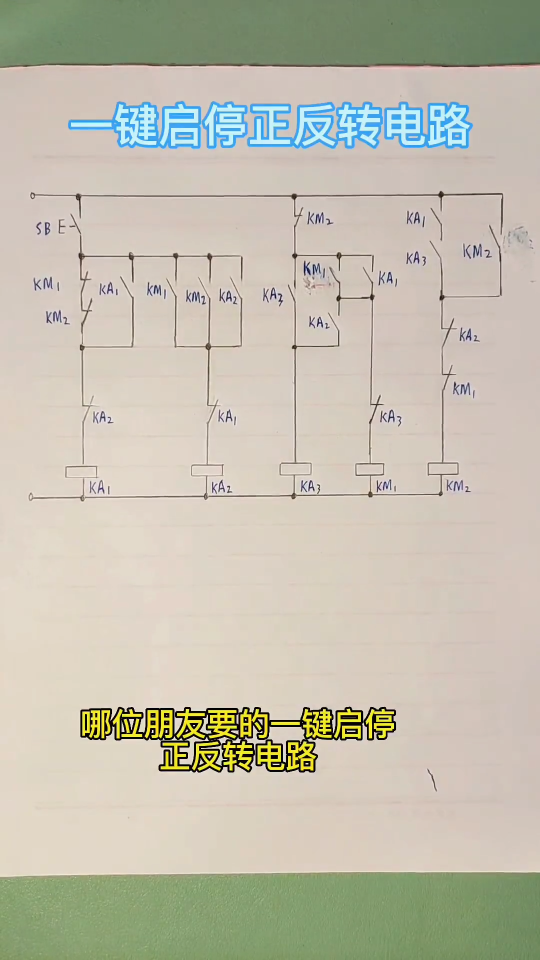 一键启停正反转电路
SB E
KM₂
KA₁
KA₃
KM₂
KM₁
KA₁
KM₁
KM₂
KA₂
KA₃
KM₁
KA₁
KM₂
KA₂
KA₂
KM₁
KA₂
KA₁
KA₃
KA₁
KA₂
KA₃
KM₁
KM₂
哪位朋友要的一键启停
正反转电路